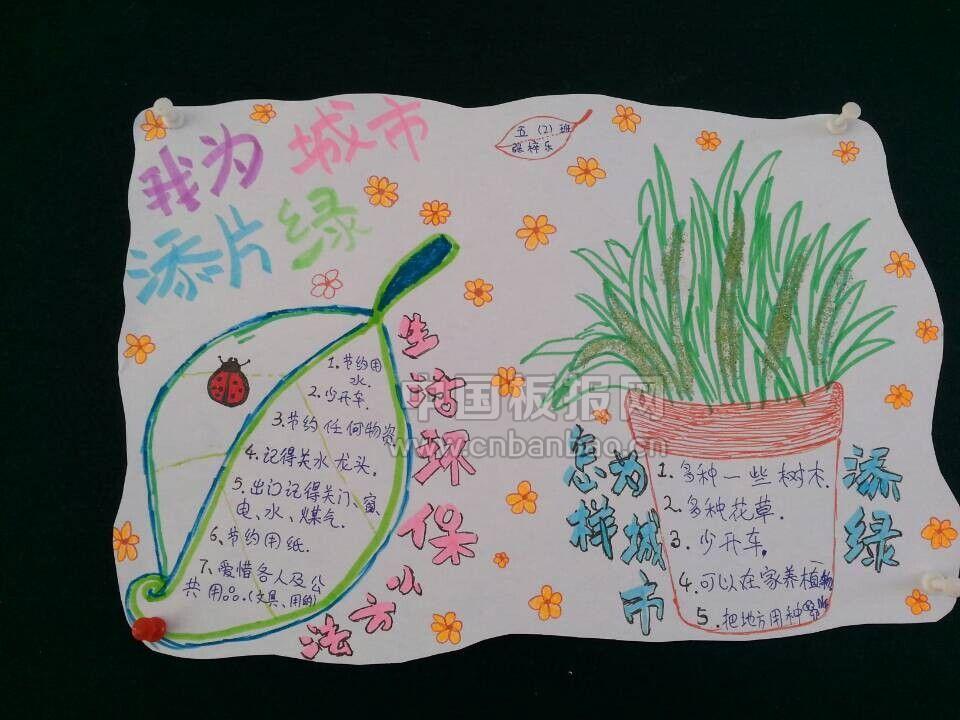 我为城市
添片绿
五(2)班
张梓乐
1.节约用
水.
2.少开车.
3.节约任何物资
4.记得关水龙头.
5.出门记得关门、窗、
电、水、煤气.
6.节约用纸.
7.爱惜各人及公
共用品.(文具、用的)
生活环保小方法
中国板报网
www.cnbanbao.cn
怎样为城市添绿
1.多种一些树木.
2.多种花草.
3.少开车.
4.可以在家养植物
5.把地方用种